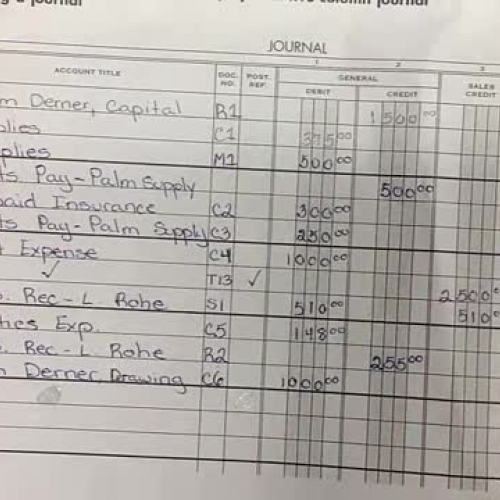 g a journal five column journal
JOURNAL
1 2 3
ACCOUNT TITLE DOC. NO. POST. REF. GENERAL SALES CREDIT
DEBIT CREDIT
m Derner, Capital R1 1500 00
plies C1 375 00
pplies M1 500 00
ts Pay-Palm Supply 500 00
paid Insurance C2 300 00
ts Pay-Palm Supply C3 250 00
t Expense C4 1000 00
✓ T13 ✓ 2500 00
. Rec - L. Rohe S1 510 00 510 00
hes Exp. C5 148 00
. Rec - L. Rohe R2 255 00
m Derner, Drawing C6 1000 00